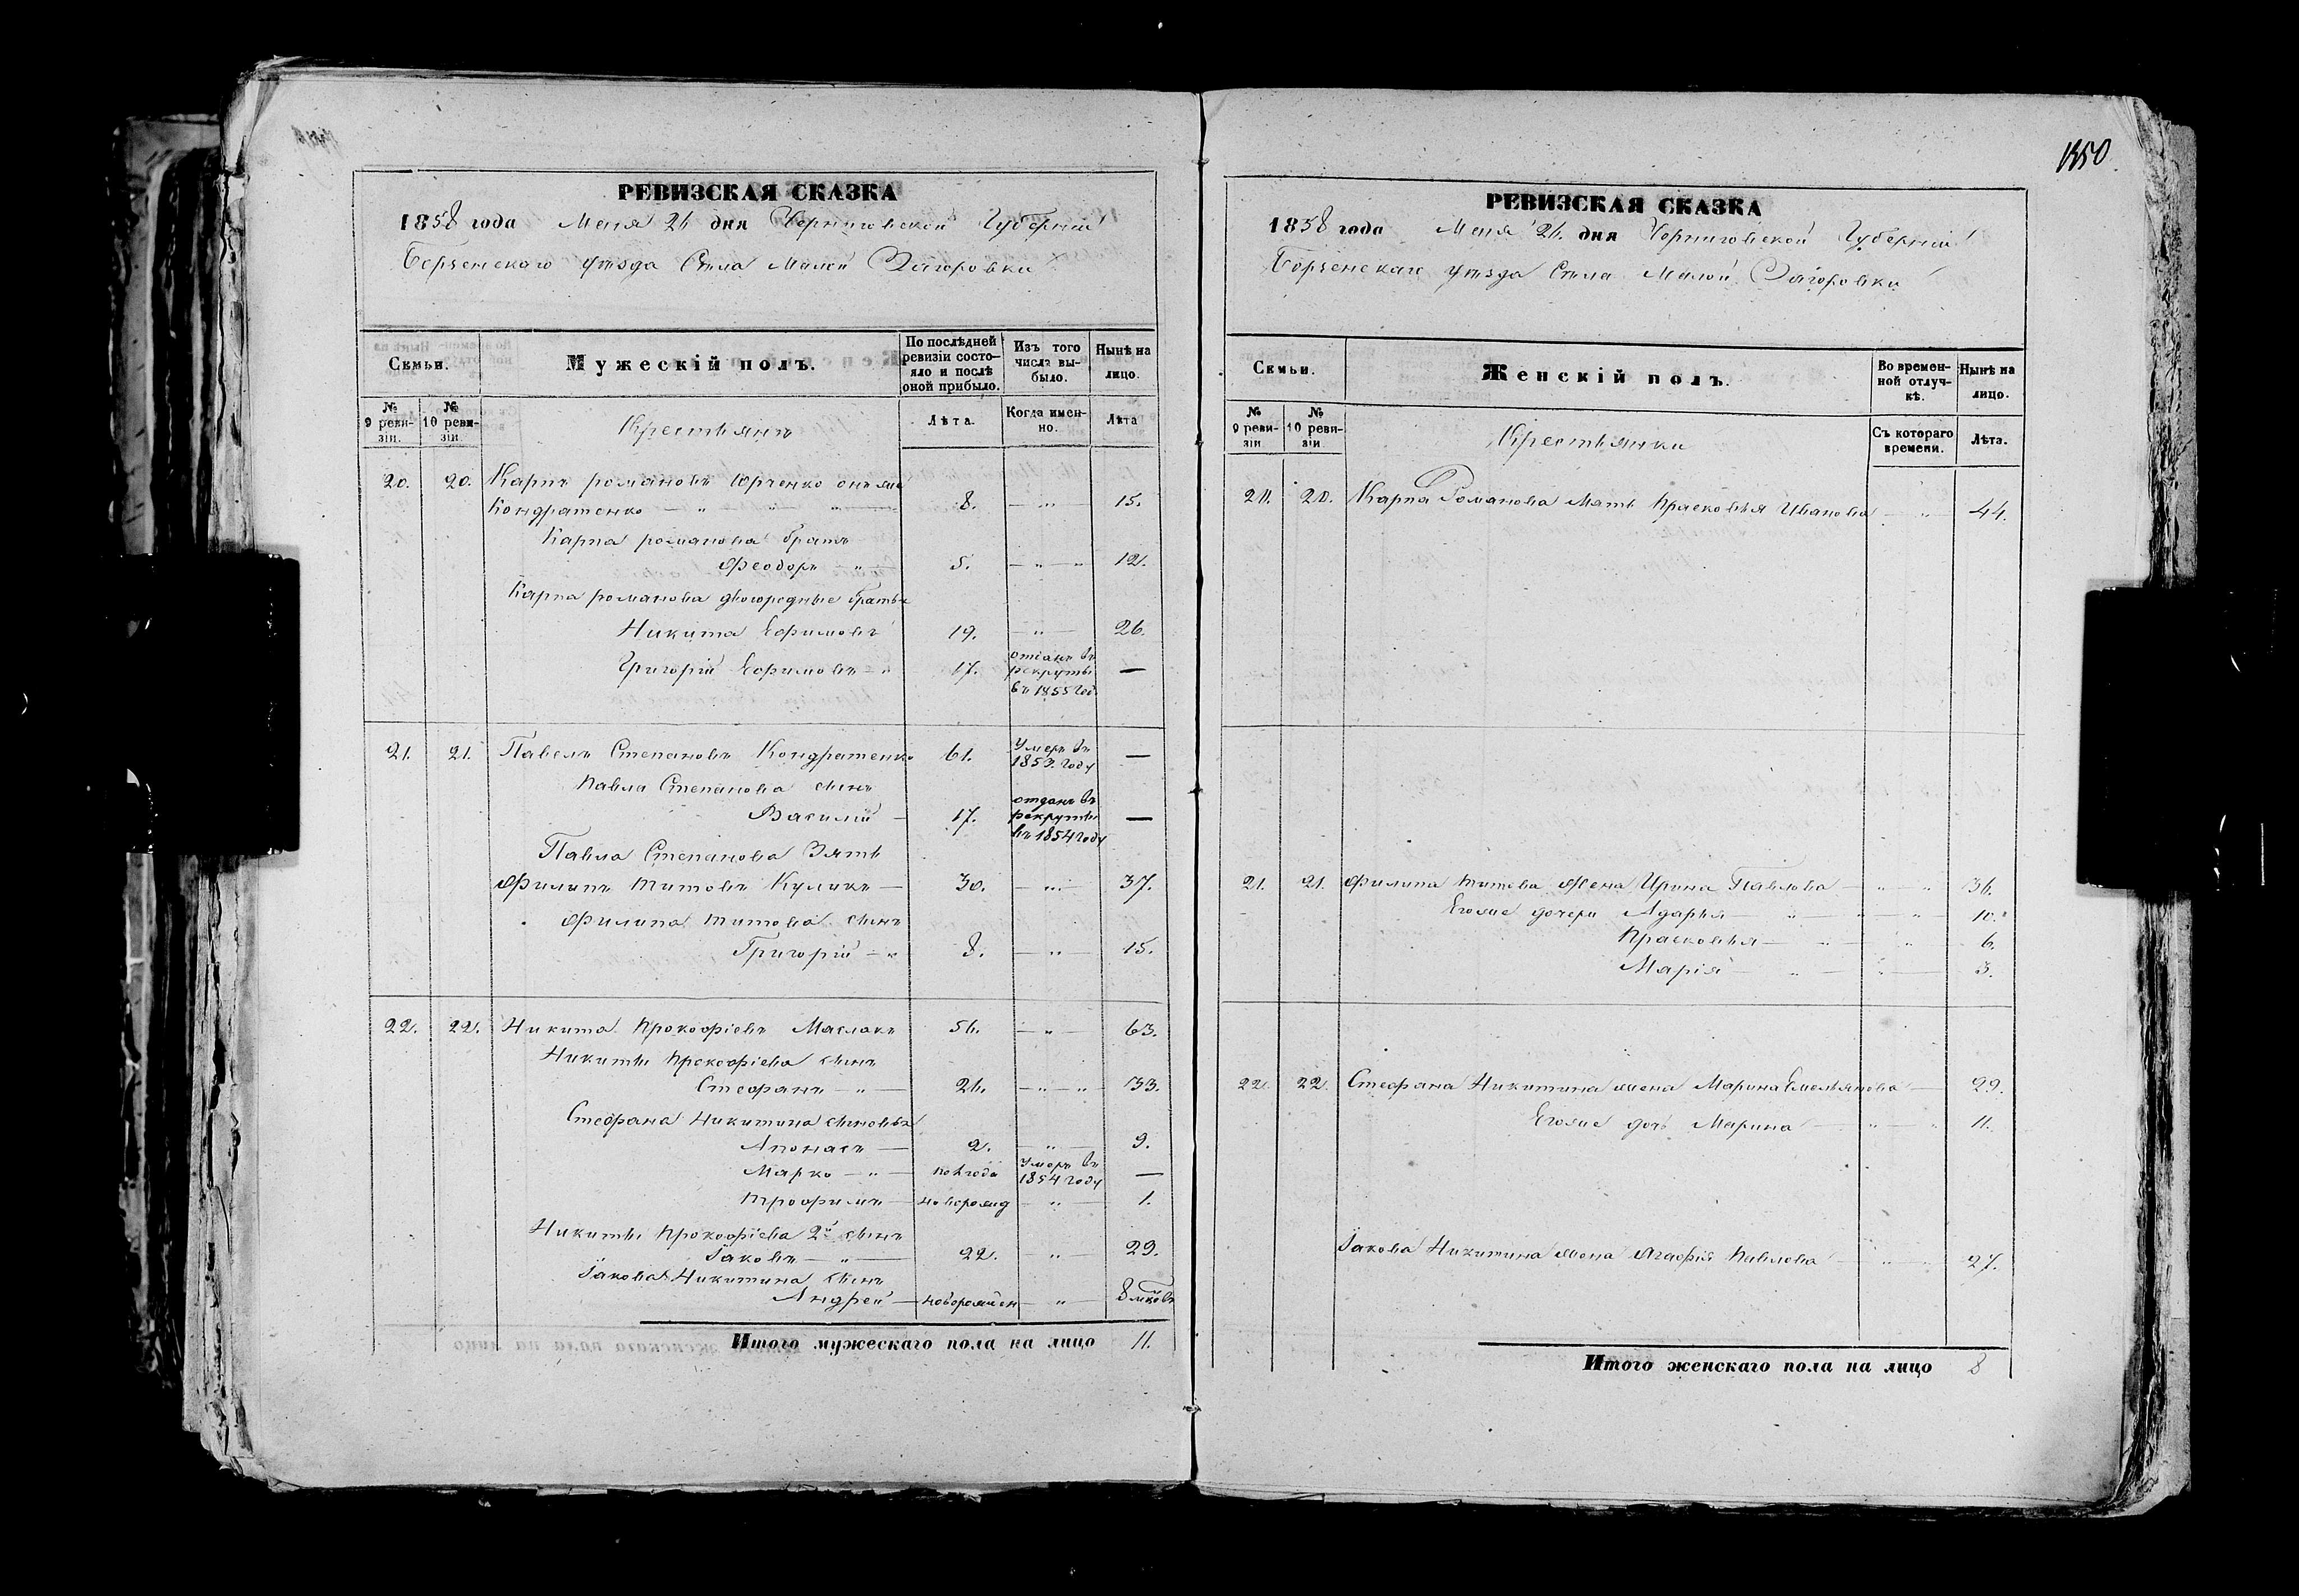 РЕВИЗСКАЯ СКАЗКА
1858 года Меня 26 дня Черниговской Губерніи
Борзенскаго уѣзда Села Малой Загоровки
Семьи.
Мужескій полъ.
По послѣдней ревизіи состояло и послѣ оной прибыло.
Изъ того числа выбыло.
Нынѣ на лицо.
№ 9 ревизіи.
№ 10 ревизіи.
Крестьянъ
Лѣта.
Когда именно.
Лѣта
20. 20. Карпъ романовъ Юрченко онъ же
Кондратенко — " — " — " — 8. — " — 15.
Карпа романова братъ
Феодоръ " — 5. — " — " 12.
Карпа романова двоюродные братья
Никита Ефимовъ 19. — " — 26.
Григорій Ефимовъ — " 17. отданъ въ рекруты въ 1855 год. —
21. 21. Павелъ Степановъ Кондратенко 61. Умеръ въ 1853. году —
Павла Степанова сынъ
Василій — 17. отданъ въ рекруты въ 1854 году —
Павла Степанова Зять
Филипъ Титовъ Куликъ — 30. — " — 37.
Филипа Титова сынъ
Григорій — " 8. — " — 15.
22. 22. Никита Прокофіевъ Маслакъ 56. — " — 63.
Никиты Прокофіева сынъ
Стефанъ — " — 26. — " — " 33.
Стефана Никитина сыновья
Апонасъ — 2. — " — 9.
Марко — " — пол года Умеръ въ 1854 году —
Трофимъ — новорожд — " — 1.
Никиты Прокофіева 2й сынъ
Іаковъ — " — 22. — " — 29.
Іакова Никитина сынъ
Андрей — новорожден — " — 8 мѣсов
Итого мужескаго пола на лицо 11.
1350
РЕВИЗСКАЯ СКАЗКА
1858 года Меня 26. дня Черниговской Губерніи
Борзенскаго уѣзда Села Малой Загоровки
Семьи.
Женскій полъ.
Во временной отлучкѣ.
Нынѣ на лицо.
№ 9 ревизіи
№ 10 ревизіи.
Крестьянки
Съ котораго времени.
Лѣта.
20. 20. Карпа Романова Мать Прасковья Иванова — " — 44.
21. 21. Филипа Титова Жена Ирина Павлова — " — " 36.
Егоже дочери Адарья — " — " — " 10.
Прасковья — " — " 6.
Марія — " — " — 3.
22. 22. Стефана Никитина жена Марина Емельянова — 29.
Егоже дочь Марина — " — " 11.
Іакова Никитина жена Агафія Павлова — " — " 27.
Итого женскаго пола на лицо 8